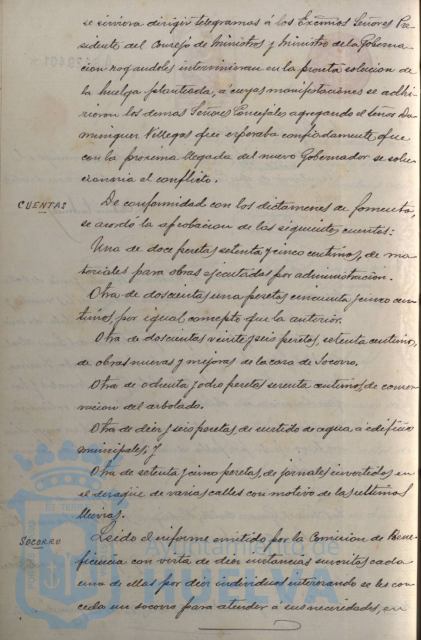 se sirviera dirigir telegramas á los Excmos Señores Pre-
sidente del Consejo de Ministros y Ministro de la Goberna-
cion rogandoles intervinieran en la pronta solucion de
la huelga planteada, a cuyas manifestaciones se adhi-
rieron los demas Señores Concejales, agregando el Señor Do-
minguez Villegas que esperaba confiadamente que
con la proxima llegada del nuevo Gobernador se solu-
cionaria el conflicto.
CUENTAS
De conformidad con los dictamenes de fomento,
se acordó la aprobacion de las siguientes cuentas:
Una de doce pesetas setenta y cinco centimos, de ma-
teriales para obras ejecutadas por administracion.
Otra de doscientas una pesetas cincuenta y cinco cen-
timos, por igual concepto que la anterior.
Otra de doscientas veinte y seis pesetas, setenta centimos,
de obras nuevas y mejoras de la casa de Socorro.
Otra de ochenta y ocho pesetas centimos, de conser-
vacion del arbolado.
Otra de diez y seis pesetas, de surtido de agua a edificios
municipales; y
Otra de setenta y cinco pesetas, de jornales invertidos en
el desagüe de varias calles con motivo de las ultimas
lluvias.
SOCORRO
Leido el informe emitido por la Comision de Bene-
ficencia con vista de diez instancias suscritas cada
una de ellas por diez individuos interesando se les con-
ceda un socorro para atender a sus necesidades, en
Ayuntamiento de
HUELVA